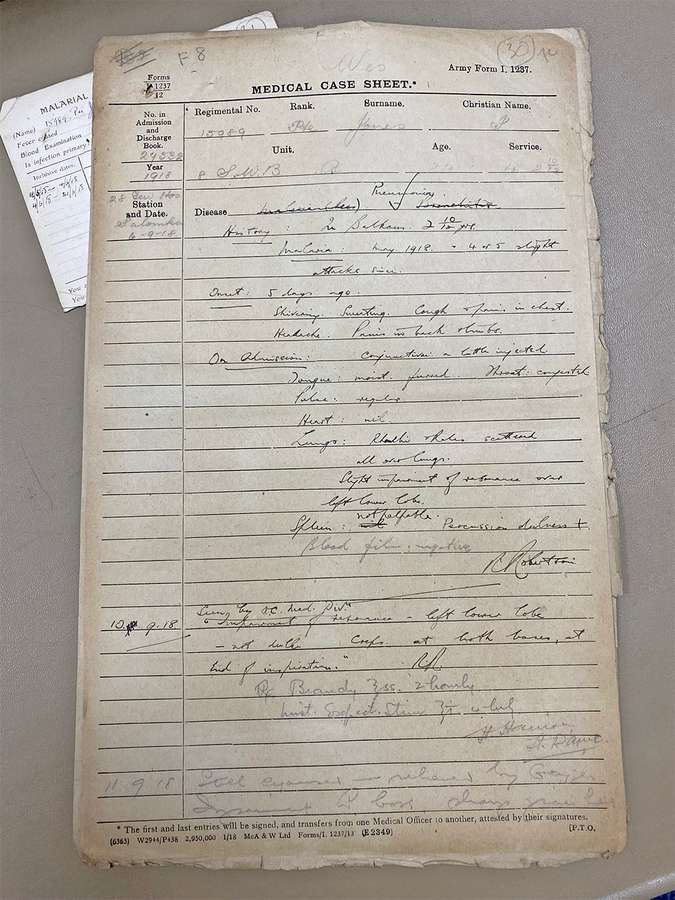 F 8
(30)
Forms
I. 1237
12
Army Form I. 1237.
MEDICAL CASE SHEET.*
No. in
Admission
and
Discharge
Book.
Year
1918
Regimental No. Rank. Surname. Christian Name.
15989 Pte Jones P
Unit. Age. Service.
8 S.W.B.
Station
and Date.
Salonika
6-9-18
Pneumonia
Disease
History : In Balkans 2 10/12 yrs.
Malaria May 1918. 4 or 5 slight
attacks since.
Onset : 5 days ago.
Shivering. Sweating. Cough & pain in chest.
Headache. Pains in back & limbs.
On Admission : Conjunctiva : a little injected
Tongue : moist, furred Throat : congested
Pulse : regular
Heart : nil
Lungs : Rhonchi & rales scattered
all over lungs.
Slight impairment of resonance over
left lower lobe.
not palpable.
Spleen : Percussion dulness +
Blood film : negative
R Robertson
10. 9. 18 Seen by O.C. Med. Divn
"Impairment of resonance - left lower lobe
- not dull. Creps. at both bases, at
end of inspiration." RR.
Rx Brandy ʒss. 2 hourly
Mist. Expect. Stim
11. 9. 18
* The first and last entries will be signed, and transfers from one Medical Officer to another, attested by their signatures.
(6363) W2944/P438 2,950,000 1/18 McA & W Ltd Forms/I. 1237/13 (E 2349) [P.T.O.
MALARIAL
(Name) 15989 Pte
Fever
Blood Examination
Is infection primary
Inclusive dates
You